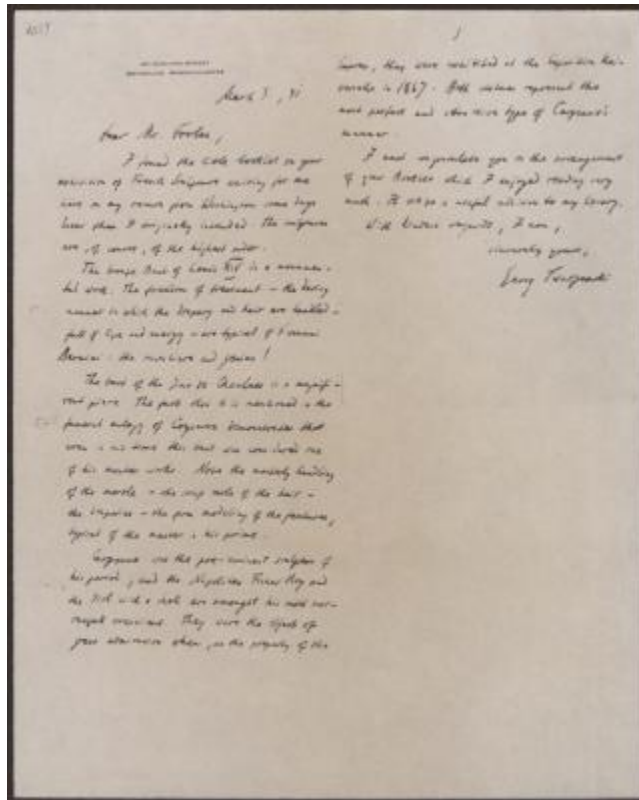 March 3, 51
Dear Mr. Fowles,
I found the little booklet on your
of French Sculpture waiting for me
here on my return from Washington some days
later than I originally intended. The sculptures
are, of course, of the highest order.
The bronze Bust of Louis XIV is a monumen-
tal work. The freedom of treatment - the daring
manner in which the drapery and hair are handled -
full of life and energy - are typical of
Bernini - the
and genius!
The bust of the is a magnifi-
cent piece. The fact that it is mentioned in the
funeral eulogy of Coysevox demonstrates that
even in his time this bust was considered one
of his master works. Note the masterly handling
of the marble - the crisp rolls of the hair -
the draperies - the fine modeling of the features,
typical of the master in his prime.
Carpeaux was the pre-eminent sculptor of
his period, and the Neapolitan Fisher Boy and
the Girl with a shell are amongst his most
creations. They were the object of
great admiration when, as the property of the
they were exhibited at the Exposition Uni-
verselle in 1867. Both statues represent the
most perfect and attractive type of Carpeaux's
manner.
I must congratulate you on the arrangement
of your Booklet which I enjoyed reading very
much. It is a useful addition to my library.
With kindest regards, I am,
Sincerely yours,